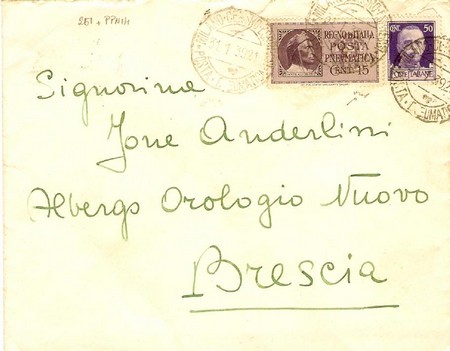 2EI + PPN14
REGNO D'ITALIA
POSTA
PNEUMATICA
CENT. 15
CENT 50
POSTE ITALIANE
21.1.39
Signorina
Jone Anderlini
Albergo Orologio Nuovo
Brescia